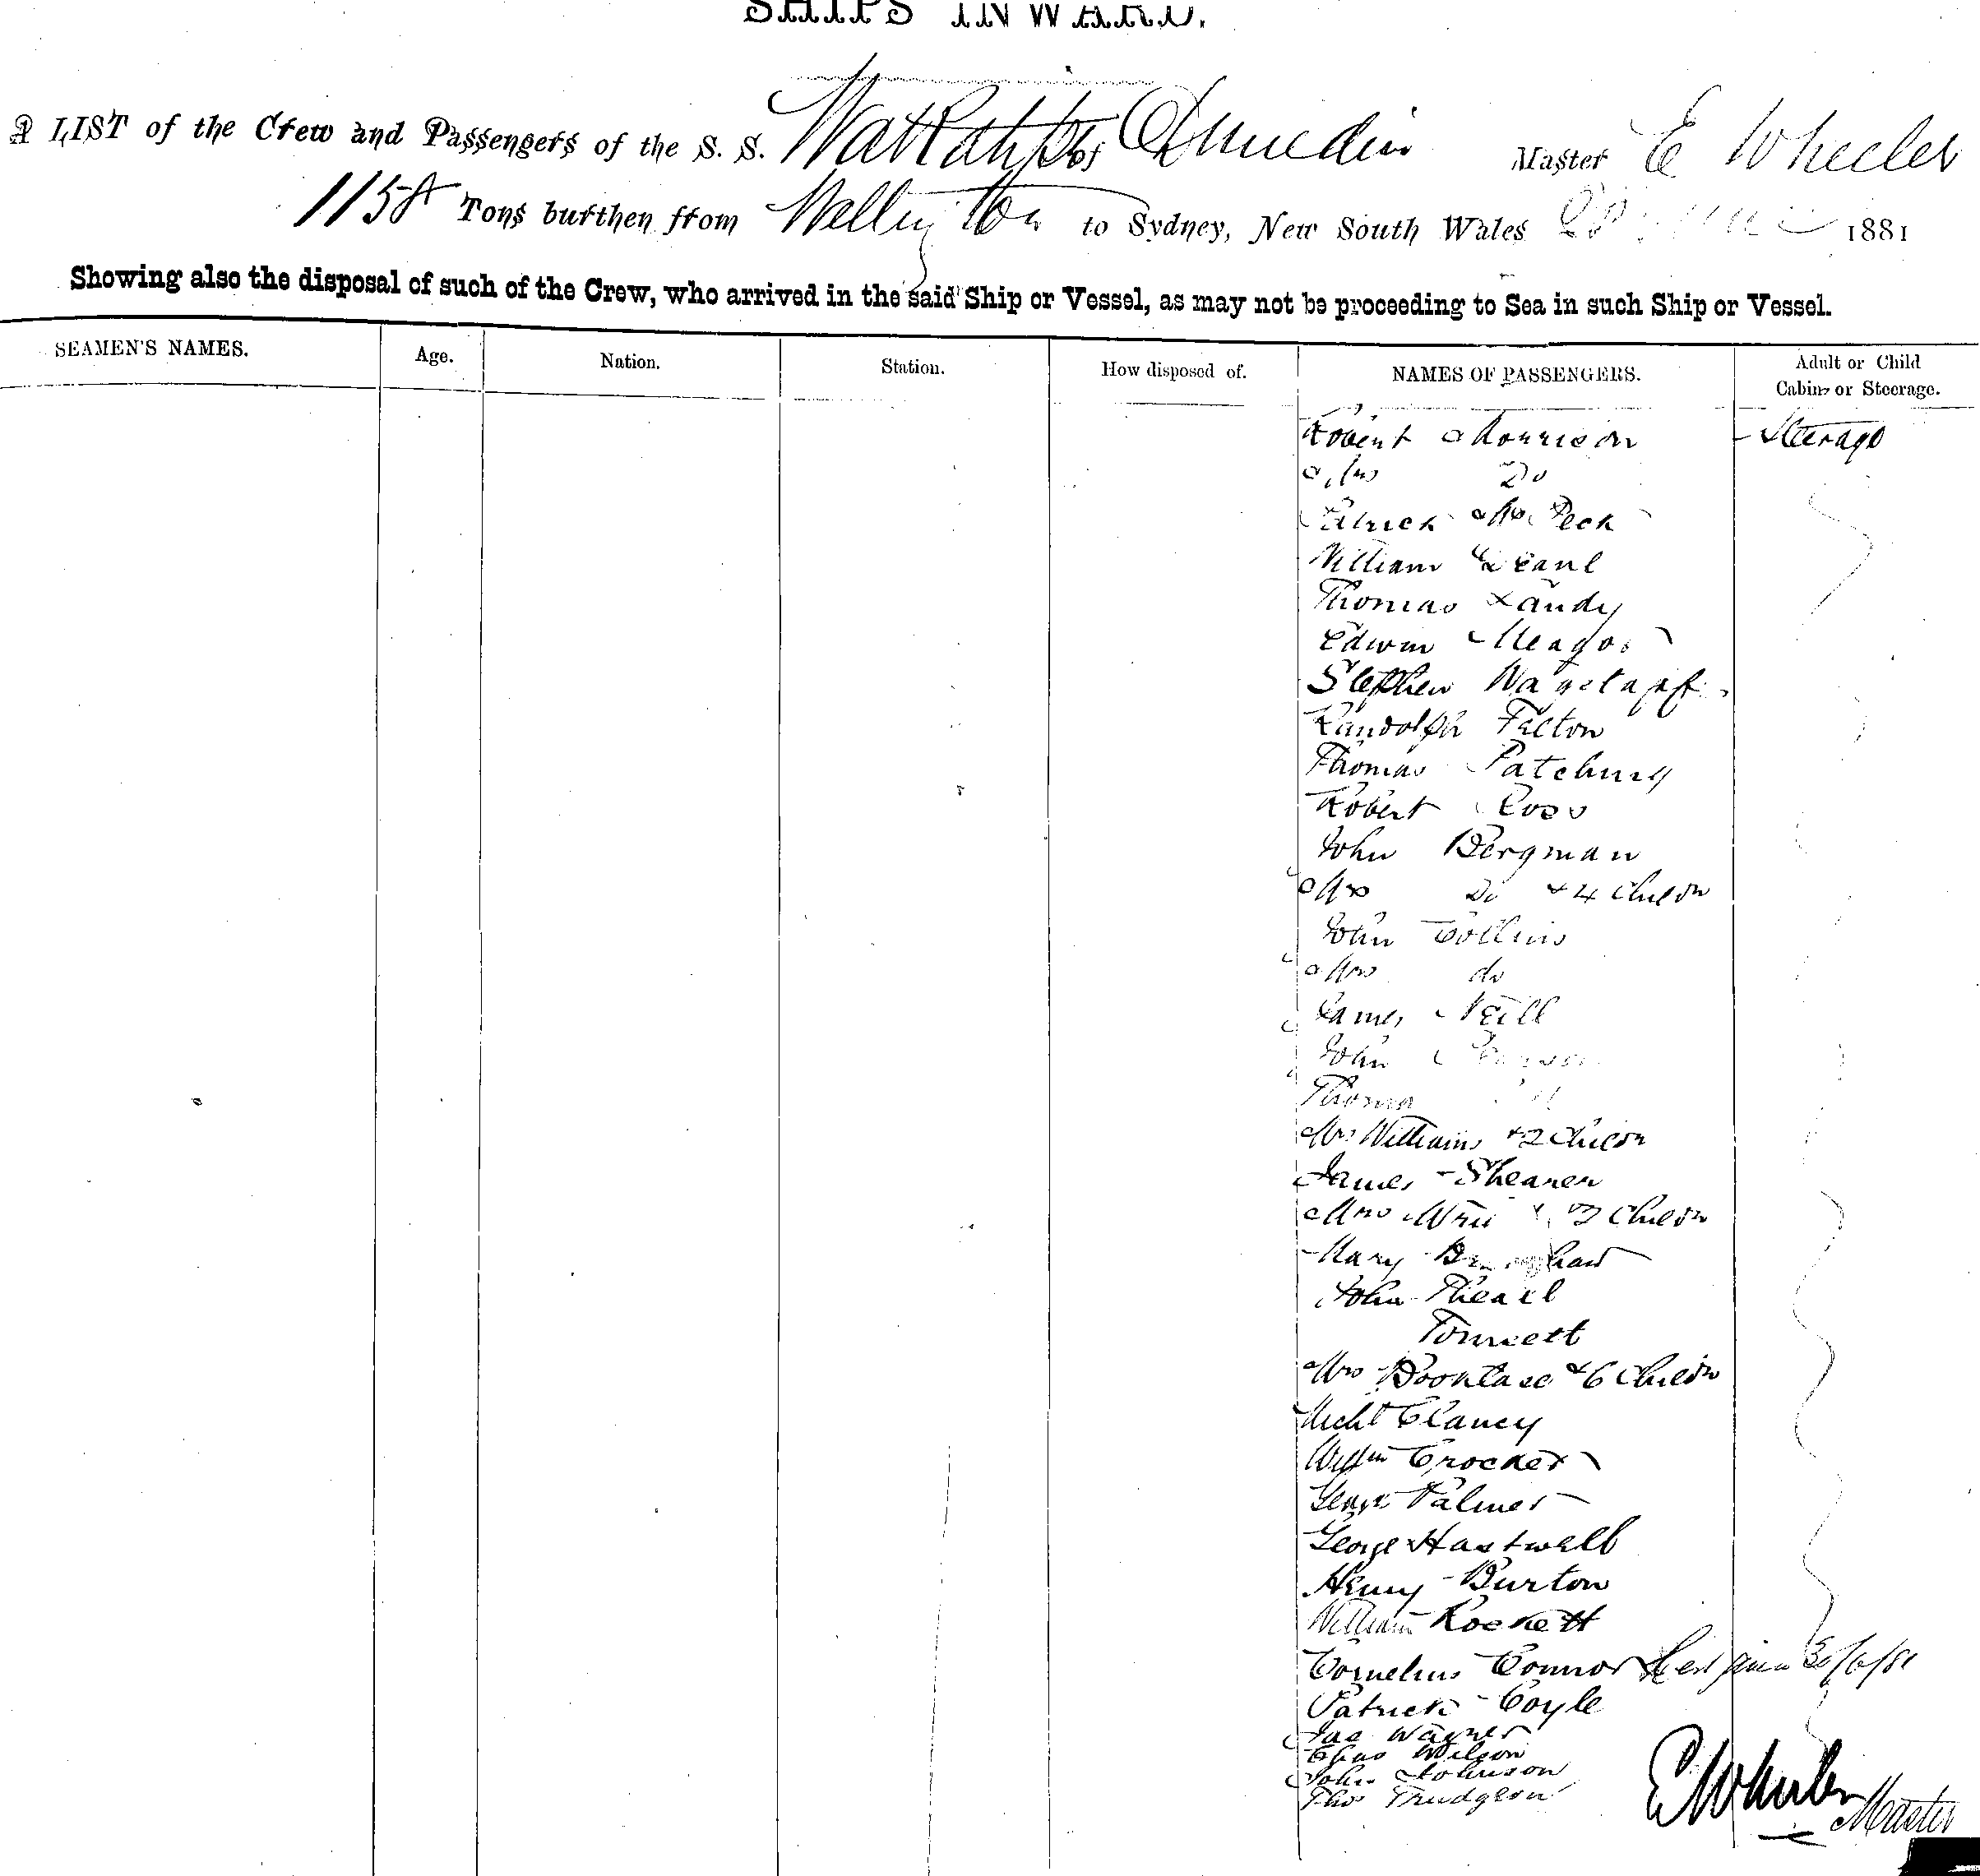 SHIPS INWARD.
A LIST of the Crew and Passengers of the S. S. Wakatipu of Dunedin Master E Wheeler
Tons burthen from Wellington to Sydney, New South Wales 1881
Showing also the disposal of such of the Crew, who arrived in the said Ship or Vessel, as may not be proceeding to Sea in such Ship or Vessel.
SEAMEN'S NAMES. Age. Nation. Station. How disposed of. NAMES OF PASSENGERS. Adult or Child Cabin or Steerage.
Robert Morrison Steerage
Mrs Do
Patrick Mc Peck
William
Thomas Landy
Edwin
Stephen Wagstaff
Randolph Felton
Thomas
Robert Ross
John Bergman
Mrs Do + 4 Childn
John Collins
Mrs do
James Neill
John
Thomas
Mrs Williams + 2 Childn
James Shearer
Mrs 2 Childn
Mary
John
Mrs + 6 Childn
Michl Clancy
Willm Crocker
George Palmer
George Hastwell
Henry Burton
William Rockett
Cornelius Connor 30/6/81
Patrick Coyle
Jas Wagner
Chas Wilson
John Johnson
Tho Trudgeon
E Wheeler Master